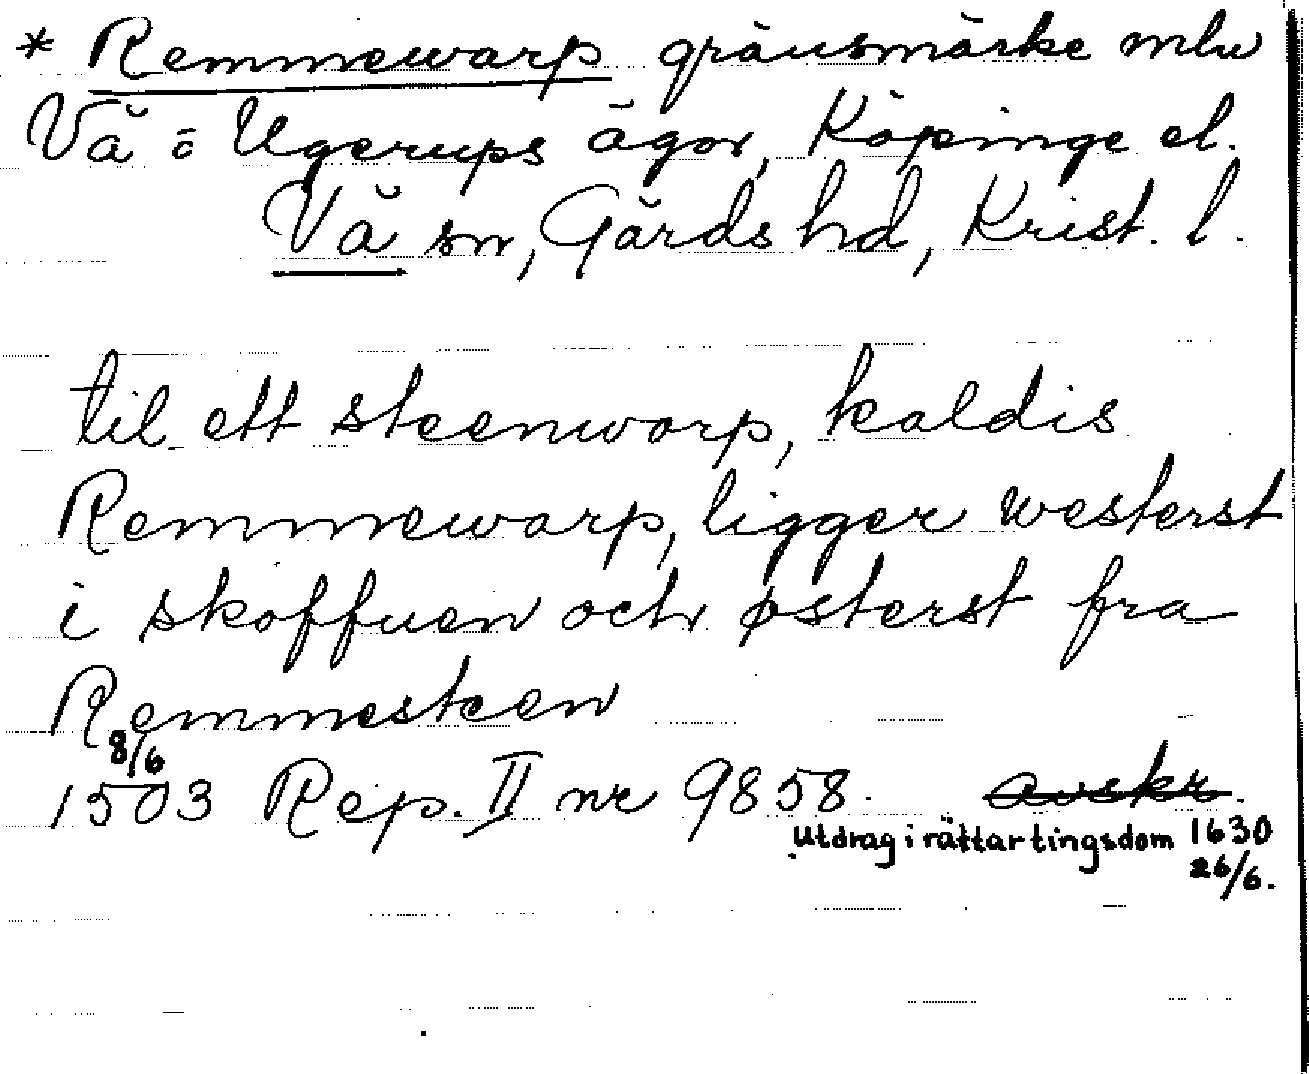 * Remmewarp gränsmärke mlw
Vä o Ugerups ägor, Köpinge el.
Vä sn, Gärds hd, Krist. l.
til ett steenworp, kaldis
Remmewarp, ligger westerst
i skoffuen och østerst fra
Remmesteen
8/6
1503 Rep. II nr 9858. avskr.
Utdrag i rättartingsdom 1630
26/6.